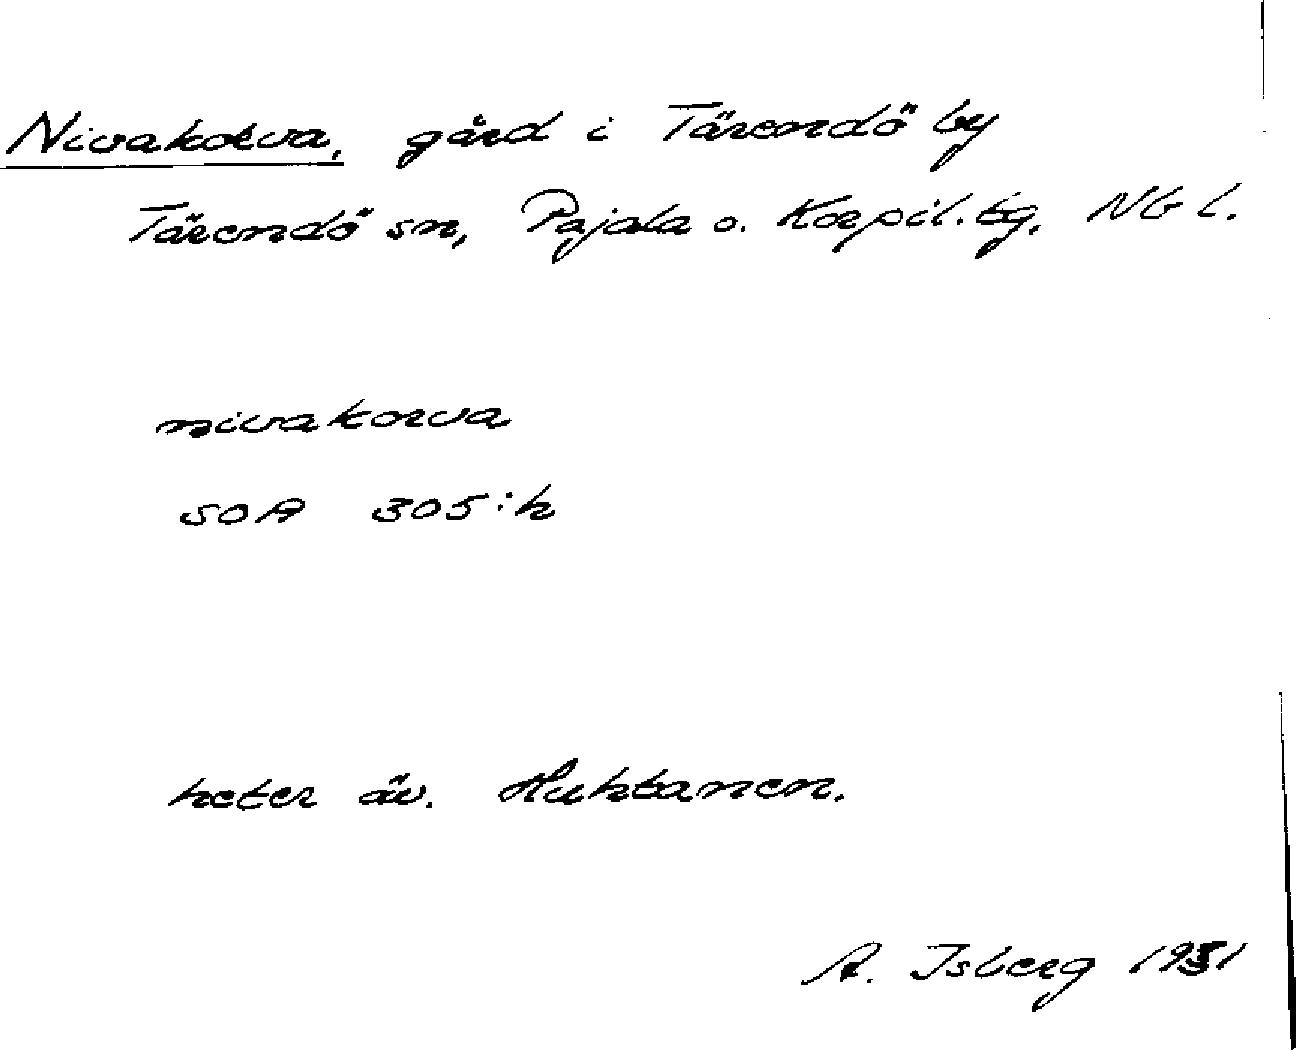 Nivakorva, gård i Tärendö by
Tärendö sn, Pajala o. Korpil. tg, Nb l.
nivakorva
SOA 305:h
heter äv. Huhtanen.
A. Isberg 1931